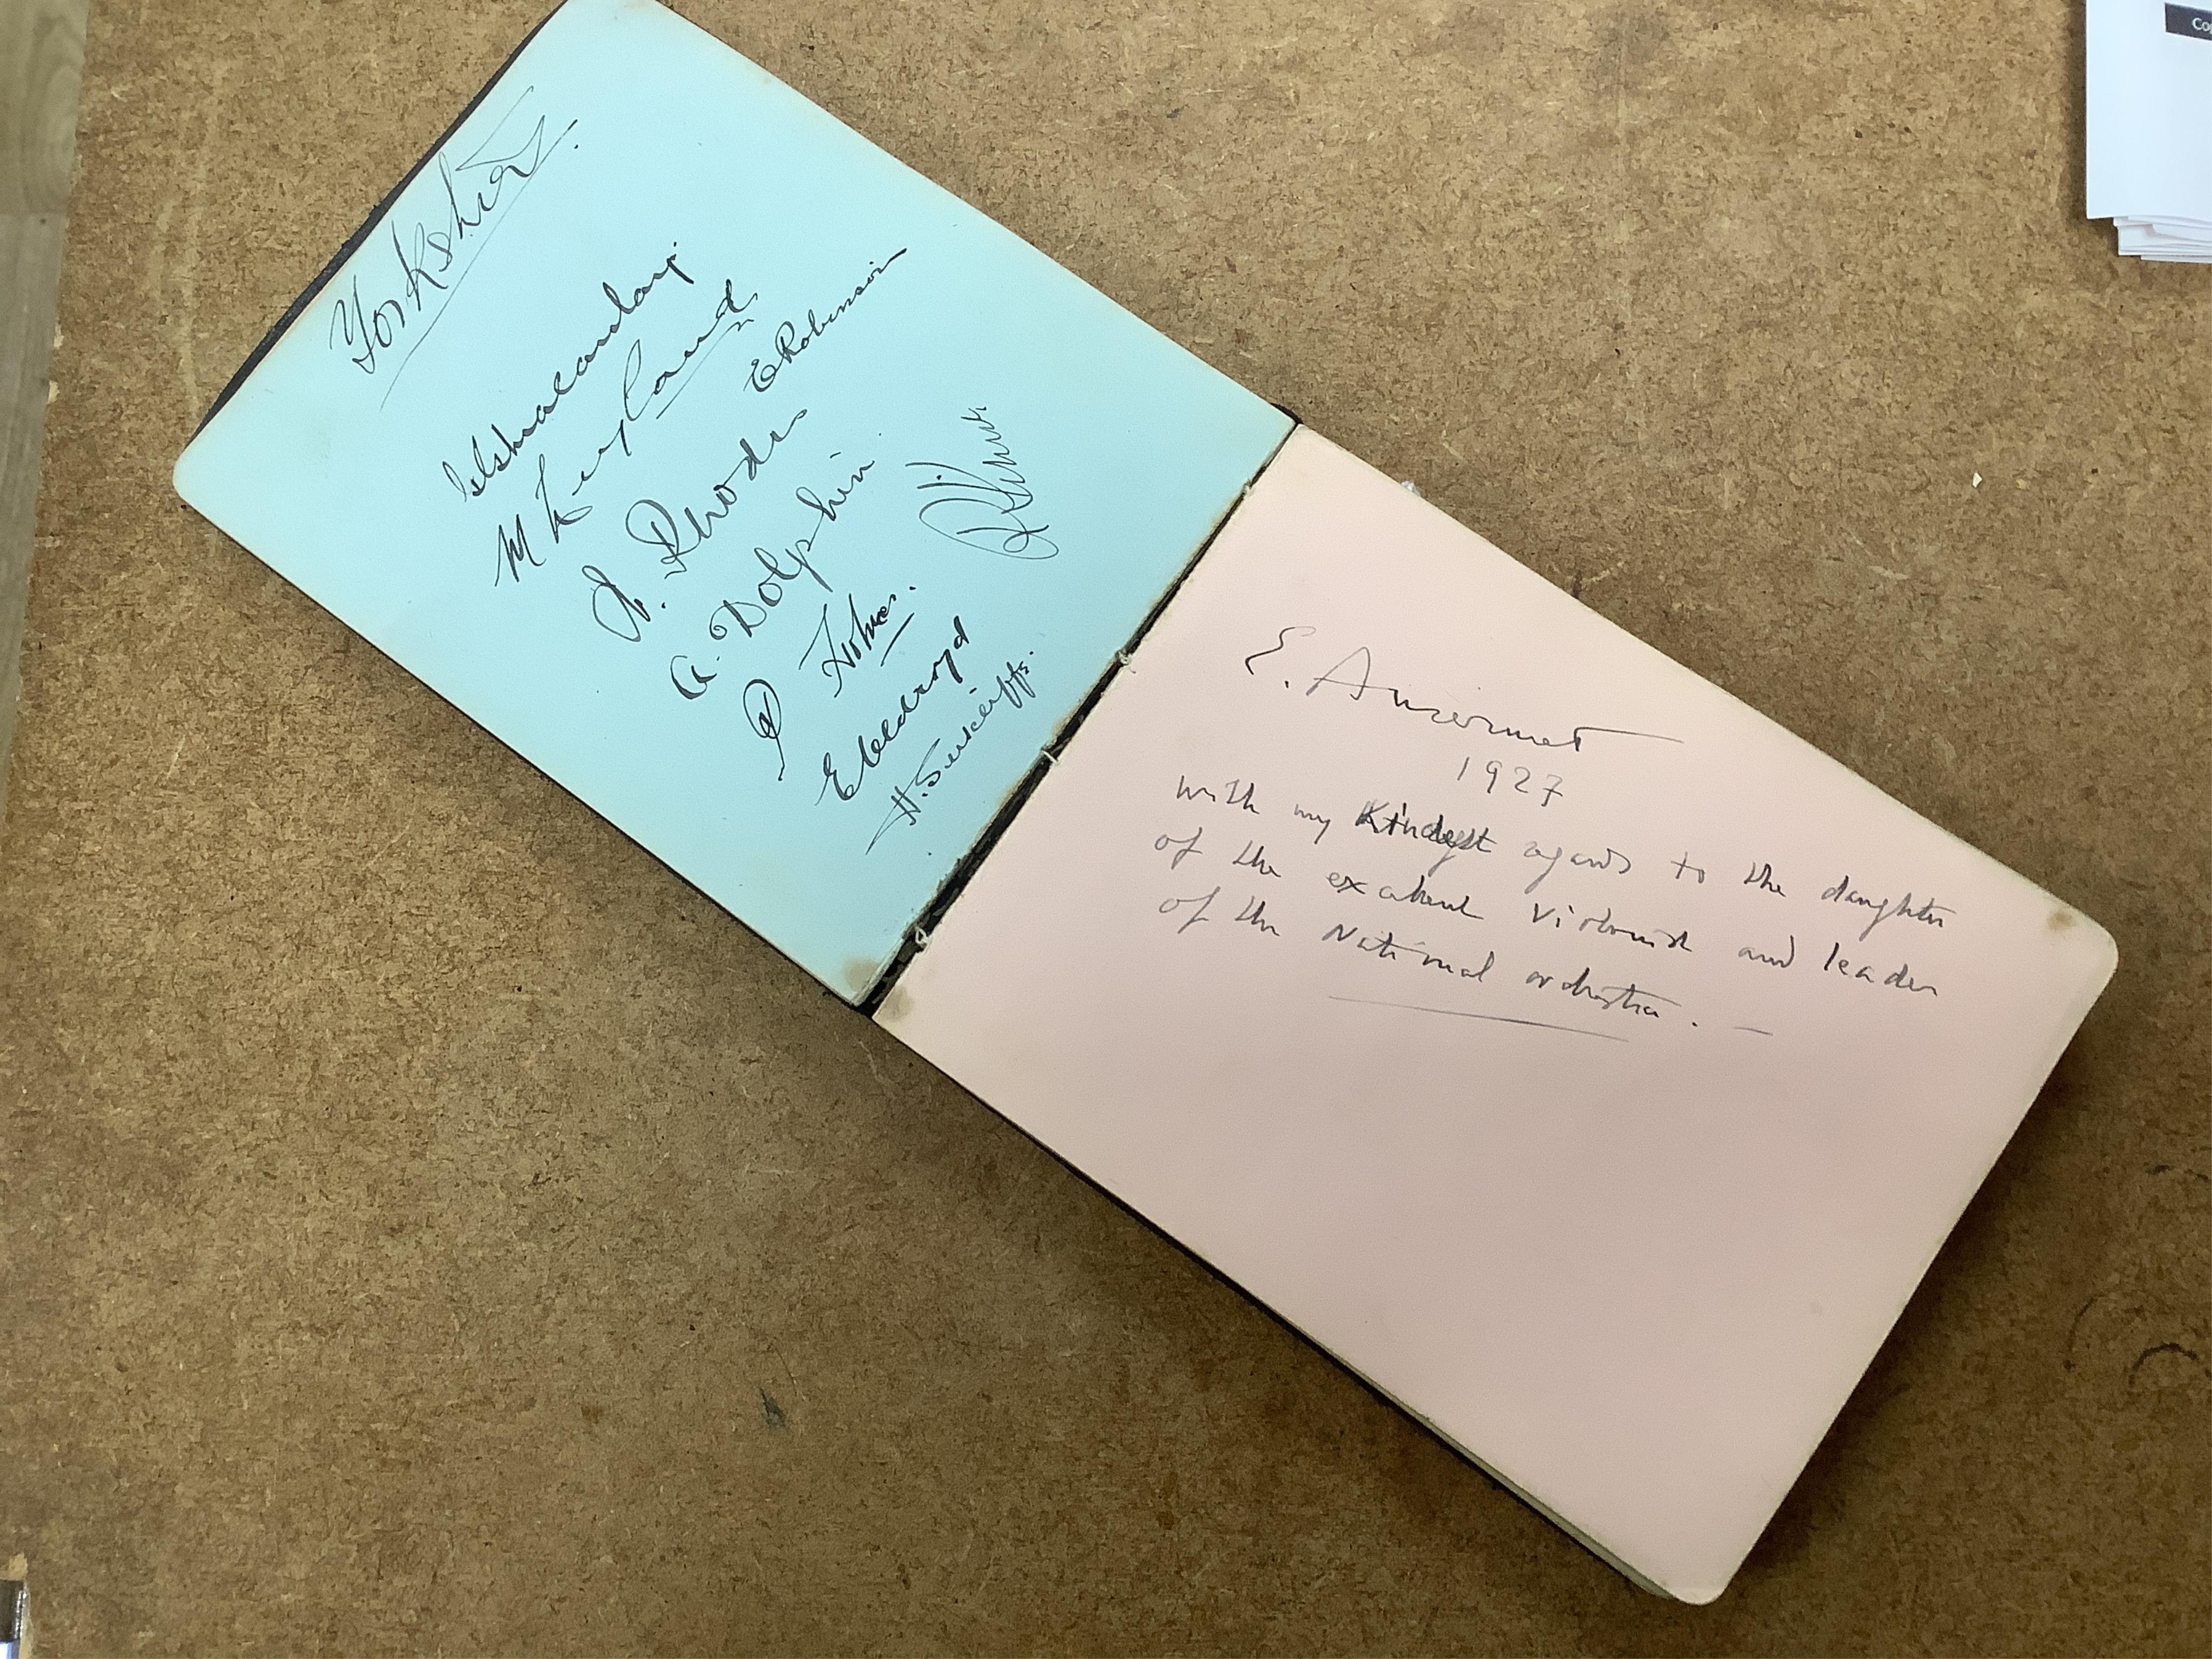 Yorkshire.
M Leyland
W. Rhodes
E Robinson
A. Dolphin.
P Holmes.
E Oldroyd
H. Sutcliffe.
E. Ansermet
1927
with my kindest regards to the daughter
of the excellent violinist and leader
of the National orchestra. —
Co